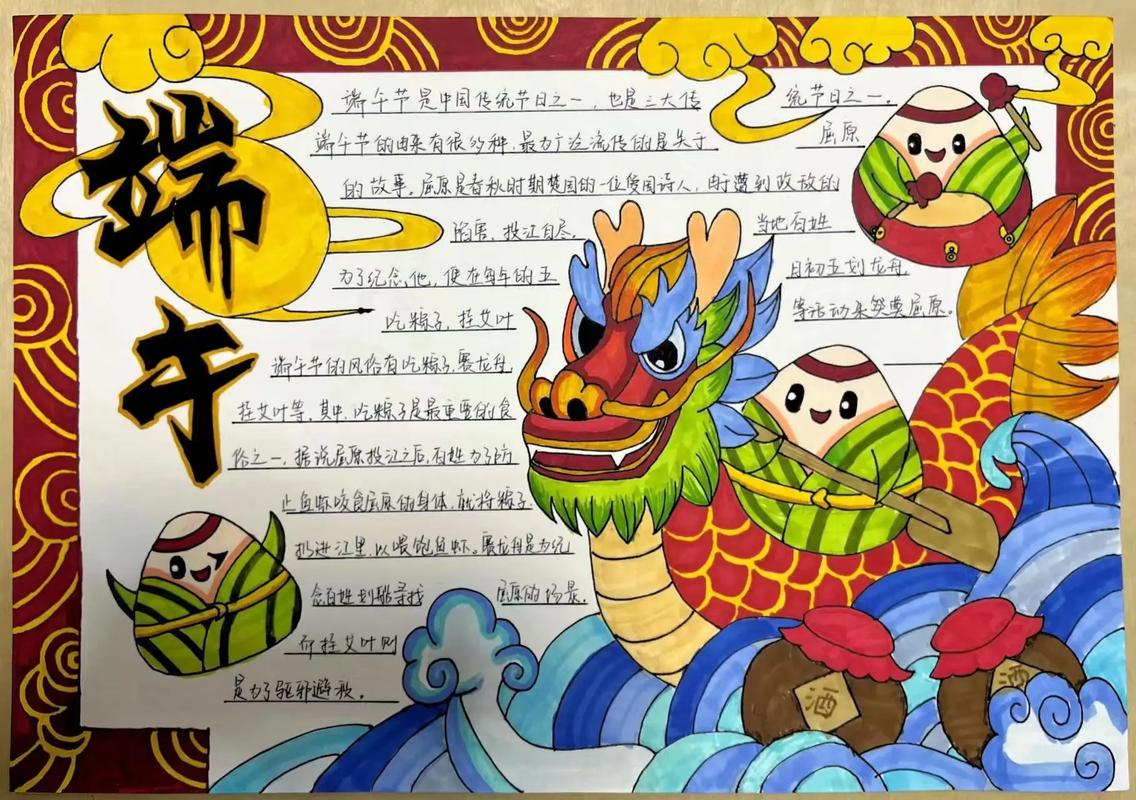 端午
端午节是中国传统节日之一，也是三大传统节日之一。
端午节的由来有很多种，最为广泛流传的是关于屈原
的故事。屈原是春秋时期楚国的一位爱国诗人，由于遭到政敌的
陷害，投江自尽。当地百姓
为了纪念他，便在每年的五月初五划龙舟
吃粽子，挂艾叶等活动来祭奠屈原。
端午节的风俗有吃粽子，赛龙舟
挂艾叶等，其中，吃粽子是最重要的食
俗之一，据说屈原投江之后，百姓为了防
止鱼虾咬食屈原的身体，就将粽子
扔进江里，以喂饱鱼虾。赛龙舟是为纪
念百姓划船寻找屈原的场景，
而挂艾叶则
是为了驱邪避秽。
酒
酒